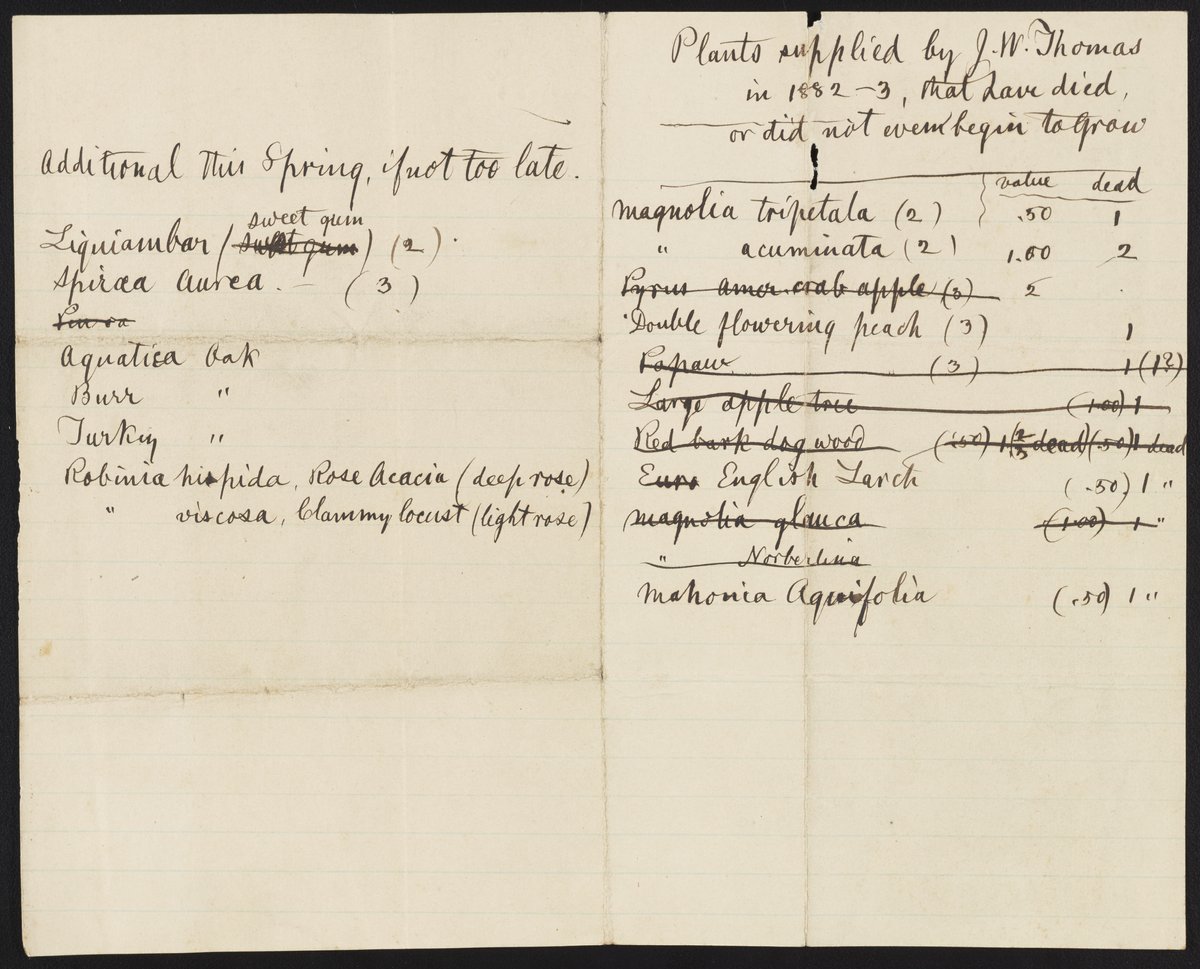 Additional this Spring, if not too late.
sweet gum
Liquiambar (sweet gum) (2)
Spiræa Aurea. – (3)
Aquatica Oak
Burr "
Turkey "
Robinia hispida, Rose Acacia (deep rose)
" viscosa, Clammy locust (light rose)
Plants supplied by J. W. Thomas
in 1882-3, that have died,
or did not even begin to grow
value dead
Magnolia tripetala (2) .50 1
" acuminata (2) 1.00 2
Pyrus amer. crab apple (3) 2
Double flowering peach (3) 1
Papaw (3) 1 (1?)
Large apple tree (1.00) 1
Red bark dog wood (.50) 1 (2/3 dead) (.50) 1 dead
Euro English Larch (.50) 1 "
Magnolia glauca (1.00) 1 "
" Norbertina
Mahonia Aquifolia (.50) 1 "